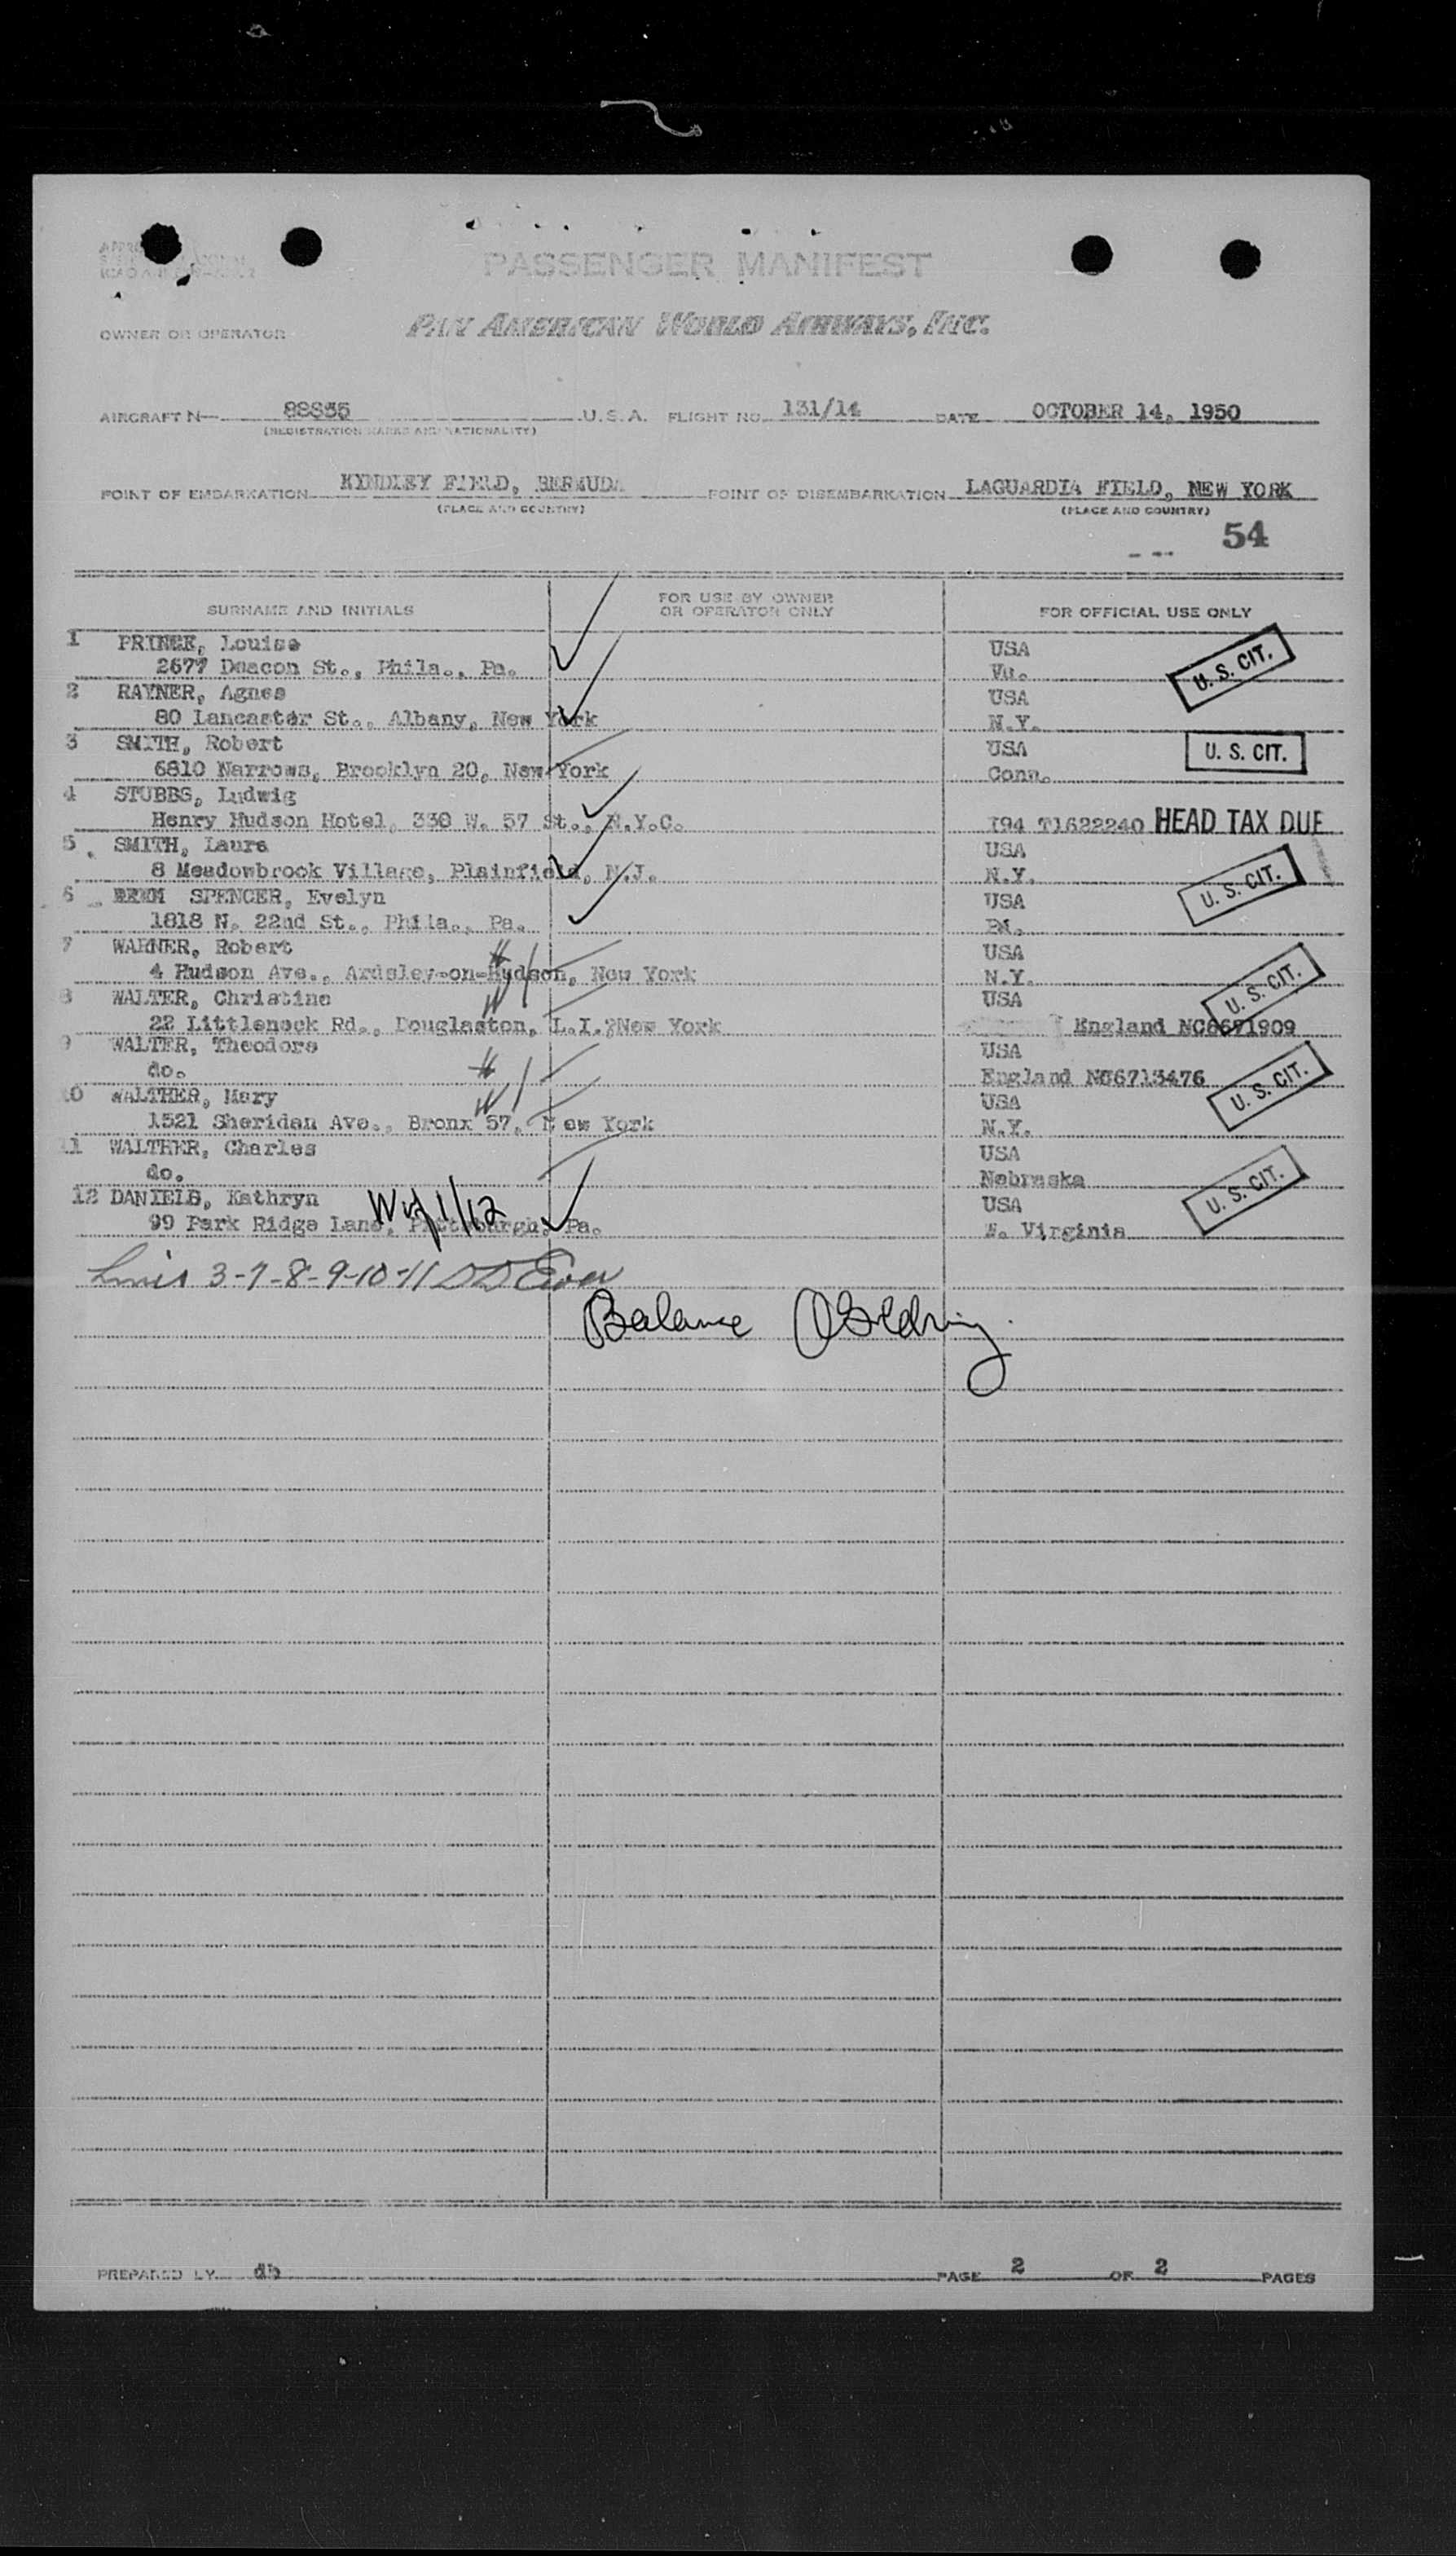 PASSENGER MANIFEST
OWNER OR OPERATOR PAN AMERICAN WORLD AIRWAYS, INC.
AIRCRAFT N— 88855 U.S.A. FLIGHT NO. 131/14 DATE OCTOBER 14, 1950
(REGISTRATION MARKS AND NATIONALITY)
POINT OF EMBARKATION KINDLEY FIELD, BERMUDA POINT OF DISEMBARKATION LAGUARDIA FIELD, NEW YORK
(PLACE AND COUNTRY) (PLACE AND COUNTRY)
54
SURNAME AND INITIALS FOR USE BY OWNER OR OPERATOR ONLY FOR OFFICIAL USE ONLY
1 PRINCE, Louise USA
2677 Deacon St., Phila., Pa. U. S. CIT.
2 RAYNER, Agnes USA
80 Lancaster St., Albany, New York N.Y.
3 SMITH, Robert USA U. S. CIT.
6810 Narrows, Brooklyn 20, New York Conn.
4 STUBBS, Ludwig
Henry Hudson Hotel, 330 W. 57 St., N.Y.C. I94 T1622240 HEAD TAX DUE
5 SMITH, Laura USA
8 Meadowbrook Village, Plainfield, N.J. N.Y. U. S. CIT.
6 SPENCER, Evelyn USA
1818 N. 22nd St., Phila., Pa. Pa.
7 WARNER, Robert USA
4 Hudson Ave., Ardsley-on-Hudson, New York N.Y. U. S. CIT.
8 WALTER, Christine USA
22 Littleneck Rd., Douglaston, L.I.,New York England
9 WALTER, Theodore USA
do. England NC6713476 U. S. CIT.
10 WALTHER, Mary USA
1521 Sheridan Ave., Bronx 57, New York N.Y.
11 WALTHER, Charles USA
do. Nebraska U. S. CIT.
12 DANIELS, Kathryn USA
99 Park Ridge Lane, Pittsburgh, Pa. W. Virginia
3-7-8-9-10-11
Balance
PREPARED BY db PAGE 2 OF 2 PAGES